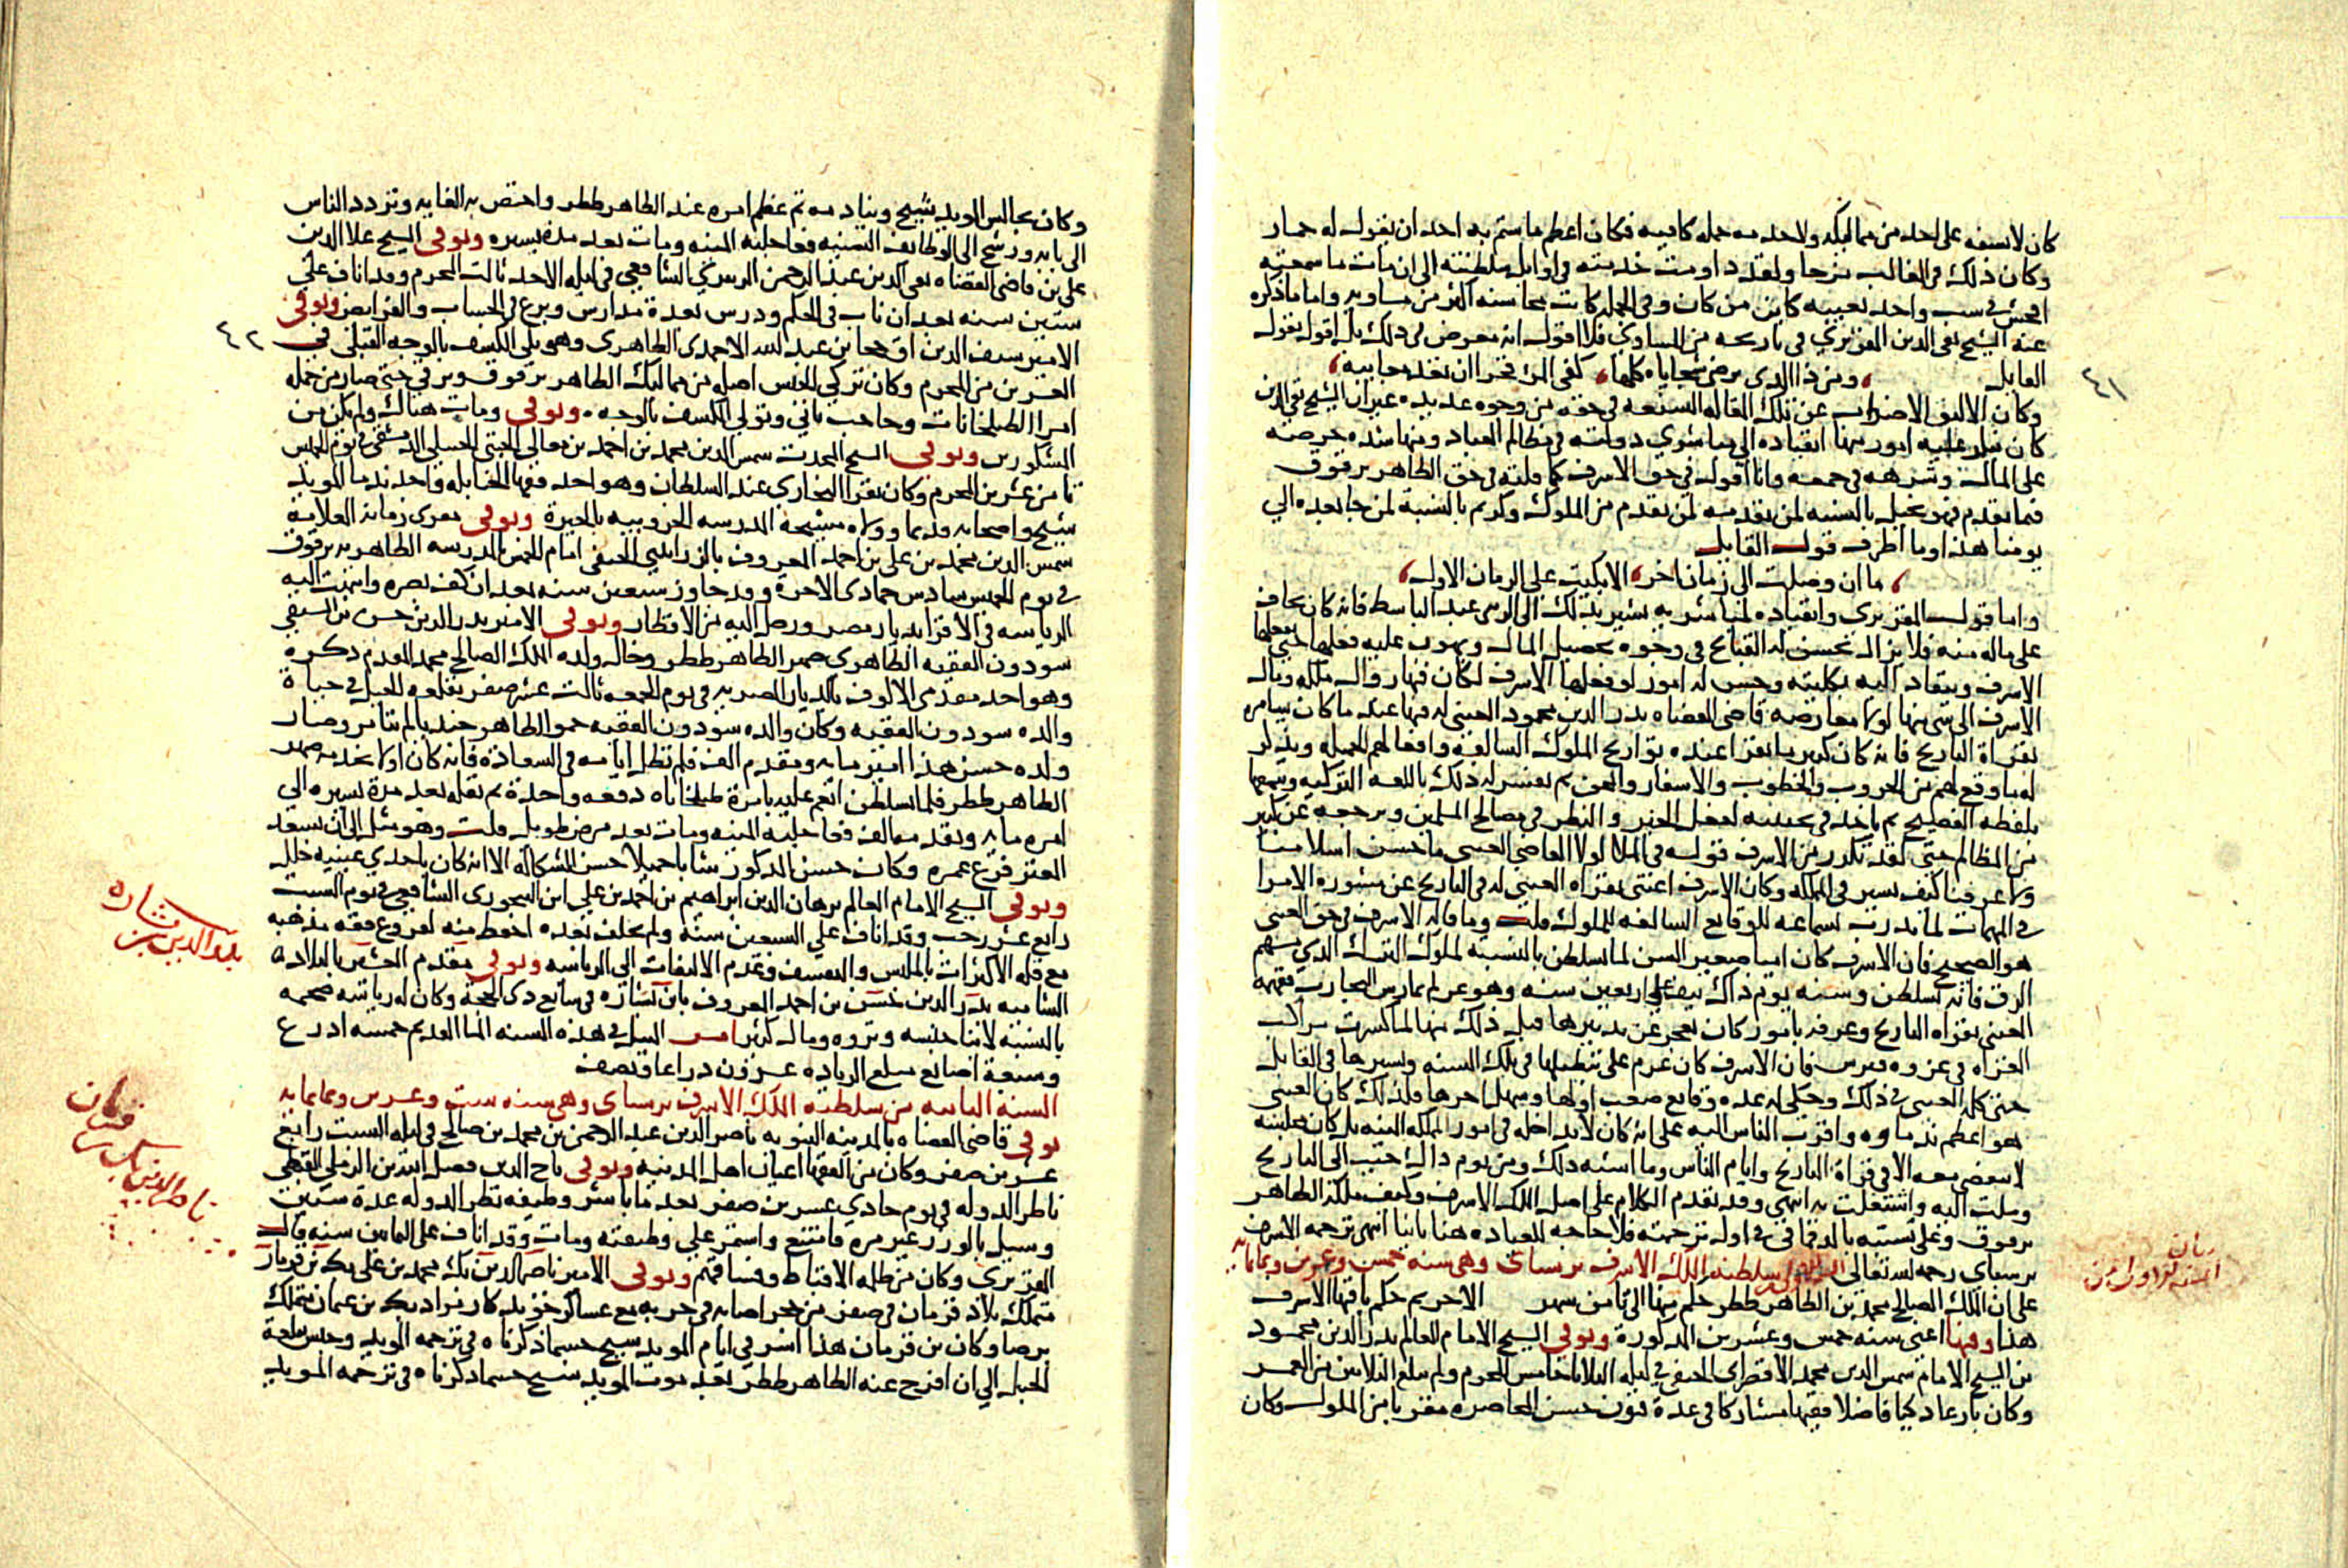 كان لا يسفه على احد من مماليكه ولا خدمه جمله كافيه فكان اعظم ما يشتم به احد ان يقول له حمار
وكان ذلك في الغالب مزحا ولقد داومت خدمته في اوايل سلطنته الى ان مات ما سمعته
افحش في سب واحد بعينه كاين من كان وفي الجمله كانت محاسنه اكثر من مساويه واما ما ذكره
عنه الشيخ تقي الدين المقريزي في تاريخه من المساوي فلا اقول انه مغرض في ذلك بل اقول بقول
القايل ومن ذا الذي يرضى سجاياه كلها كفى المرء فخرا ان تعد معايبه
٤١
وكان الاليق الاضراب عن تلك المقاله الشنعه في حقه من وجوه عديده غير ان الشيخ تقي الدين
كان ينكر عليه امور منها انقياده الى مباشري دولته في مظالم العباد ومنها شدة حرصه
على المال وشرهه في جمعه وانا اقول في حق الاشرف كما قلته في حق الظاهر برقوق
فيما تقدم فهو بخيل بالنسبه لمن تقدمه لمن تقدم من الملوك وكريم بالنسبة لمن جا بعده الي
يومنا هذا وما اظرف قول القايل
ما ان وصلت الى زمان اخر الا بكيت على الزمان الاول
واما قول المقريزي وانقياده لمباشريه يشير بذلك الى الزيني عبد الباسط فانه كان يخاف
على ماله منه فلا يزال يحسن له القبايح في وجوه تحصيل المال ويهون عليه فعلها حتى يفعلها
الاشرف وينقاد اليه بكليته وحسن له امور لو فعلها الاشرف لكان فيها زوال ملكه ومال
الاشرف الى شي منها لولا معارضه قاضي القضاه بدر الدين محمود العيني له فيها عند ما كان يسامره
بقراة التاريخ فانه كان كثيرا ما يقرا عنده تواريخ الملوك السالفه وافعالهم الجميله ويذكر
له ما وقع لهم من الحروب والخطوب والاسفار والمحن ثم يفسر له ذلك باللغه التركيه وينمقها
بلفظه الفصيح ثم ياخذ في تحبيبه لفعل الخير والنظر في مصالح المسلمين ويرجعه عن كثير
من المظالم حتى لقد تكرر من الاشرف قوله في الملا لولا القاضي العيني ما حسن اسلامنا
ولا عرفنا كيف نسير في المملكه وكان الاشرف اغتنى بقراه العيني له في التاريخ عن مشورة الامرا
في المهمات لما تدرب بسماعه للوقايع السالفه للملوك قلت وما قاله الاشرف في حق العيني
هو الصحيح فان الاشرف كان اميا صغير السن لما تسلطن بالنسبة لملوك الترك الذين مسهم
الرق فانه تسلطن وسنه يوم ذاك نيف على اربعين سنه وهو غر لم يمارس التجارب ففقهه
العيني بقراه التاريخ وعرفه بامور كان يعجز عن تدبيرها قبل ذلك منها لما كسرت مراكب
الغزاه في غزوه قبرس فان الاشرف كان عزم على تبطيلها في تلك السنه وتسيرها في القابل
حتى كلمه العيني في ذلك وحكى له عده وقايع صعب اولها وسهل اخرها فلذلك كان العيني
هو اعظم ندماوه واقرب الناس اليه على انه كان لا يداخله في امور المملكه البته بل كان مجلسه
لا ينقضي معه الا في قراة التاريخ وايام الناس وما اشبه ذلك ومن يوم ذاك حبب الى التاريخ
وملت اليه واشتغلت به انتهى وقد تقدم الكلام على اصل الملك الاشرف وكيف ملكه الظاهر
برقوق وعلى نسبته بالدقماقي في اول ترجمته فلا حاجه للعباده هنا ثانيا انتهى ترجمه الاشرف
برسباي رحمه الله تعالى السنه الاولى من سلطنه الملك الاشرف برسباي وهي سنه خمس وعشرين وثمانمايه
على ان الملك الصالح محمد بن الظاهر ططر حكم منها الى ثامن شهر الاخر ثم حكم باقيها الاشرف
هذا وفيها اعني سنه خمس وعشرين المذكورة وتوفي الشيخ الامام العالم بدر الدين محمود
بن الشيخ الامام شمس الدين محمد الاقصراي الحنفي في ليله الثلاثا خامس المحرم ولم يبلغ الثلاثين من العمر
وكان بارعا ذكيا فاضلا فقيها مشاركا في عدة فنون حسن المحاضره مقربا من الملوك وكان
وكان يجالس المويد شيخ وينادمه ثم عظم امره عند الظاهر ططر واختص به الغايه وتردد الناس
الى بابه ورشح الى الوظايف السنيه فعاجلته المنيه ومات بعد مدة يسيره وتوفي الشيخ علا الدين
علي بن قاضي القضاه تقي الدين عبد الرحمن الزبيري الشافعي في ليله الاحد ثالث المحرم وقد اناف على
ستين سنه بعد ان ناب في الحكم ودرس بعدة مدارس وبرع في الحساب والفرايض وتوفي
٤٢
الامير سيف الدين اق خجا بن عبد الله الاحمدي الظاهري وهو يلي الكشف بالوجه القبلي في
العشرين من المحرم وكان تركي الجنس اصله من مماليك الظاهر برقوق وترقى حتى صار من جمله
امرا الطبلخانات وحاجب ثاني وتولي الكشف بالوجه وتوفي ومات هناك ولم يكن من
المشكورين وتوفي الشيخ المحدث شمس الدين محمد بن احمد بن معالي الحبتي الحنبلي الدمشقي في يوم الخميس
ثامن عشرين المحرم وكان يقرا البخاري عند السلطان وهو احد فقها الحنابله واحد ندما المويد
شيخ واصحابه قديما وولاه مشيخة المدرسه الخروبيه بالجيزة وتوفي مقري زمانه العلامة
شمس الدين محمد بن علي بن احمد المعروف بالزراتيتي الحنفي امام الخمس بالمدرسه الظاهريه برقوق
في يوم الخميس سادس جمادى الاخرة وقد جاوز سبعين سنه بعد ان كف بصره وانتهت اليه
الرياسه في الاقرا بديار مصر ورحل اليه من الاقطار وتوفي الامير بدر الدين حسن بن السيفي
سودون الفقيه الظاهري صهر الظاهر ططر وخال ولده الملك الصالح محمد المقدم ذكره
وهو احد مقدمي الالوف بالديار المصريه في يوم الجمعه ثالث عشر صفر بقلعه الجبل في حياة
والده سودون الفقيه وكان والده سودون الفقيه حمو الظاهر جنديا لم يتامر وصار
ولده حسن هذا امير مايه ومقدم الف فلم تطل ايامه في السعادة فانه كان اولا بخدمه صهره
الظاهر ططر فلما تسلطن انعم عليه بامرة طبلخاناه دفعه واحدة ثم نقله بعد مدة يسيره الى
امره مايه وتقدمه الف فعاجلته المنيه ومات بعد مرض طويل قلت وهو مثل الى ان يسعد
المعتر فرغ عمره وكان حسن المذكور شابا جميلا حسن الشكاله الا انه كان باحدي عينيه خلل
وتوفي الشيخ الامام العالم برهان الدين ابراهيم بن احمد بن علي ابن البيجوري الشافعي في يوم السبت
رابع عشر رجب وقد اناف على السبعين سنة ولم يخلف بعده احفظ منه لفروع فقه مذهبه
مع قله الاكتراث بالملبس والتقشف وعدم الالتفات الى الرياسه وتوفي مقدم العشير بالبلاد
بدر الدين بن بشاره
الشاميه بدر الدين حسن بن احمد المعروف بابن بشاره في سابع ذي الحجة وكان له رياسه ضخمه
بالنسبه لابنا جنسه وثروه ومال كثير امر النيل في هذه السنه الما القديم خمسه اذرع
وسبعة اصابع مبلع الزياده عشرون ذراعا ونصف
السنه الثانيه من سلطنه الملك الاشرف برسباي وهي سنه ست وعشرين وثمانمايه
توفي قاضي القضاه بالمدينه النبويه ناصر الدين عبد الرحمن بن محمد بن صالح في ليله السبت رابع
عشرين صفر وكان من الفقها اعيان اهل المدينه وتوفي تاج الدين فضل الله بن الرملي القبطي
ناظر الدوله في يوم حادي عشرين صفر بعد ما باشر وظيفه نظر الدوله عدة سنين
وسيل بالوزر غير مره فامتنع واستمر على وظيفته ومات وقد اناف على الثمانين سنه قال
المقريزي وكان من ظلمه الاقباط وفساقهم وتوفي الامير ناصر الدين بك محمد بن علي بك بن قرمان
ناصر الدين بك بن قرمان
متملك بلاد قرمان في صفر من حجر اصابه في حربه مع عساكر خوندكار مراد بك بن عثمان متملك
برصا وكان بن قرمان هذا اسر في ايام المويد شيخ حسبما ذكرناه في ترجمه المويد وحبس بقلعة
الجبل الى ان افرج عنه الظاهر ططر بعد موت المويد شيخ حسبما ذكرناه في ترجمه المويد